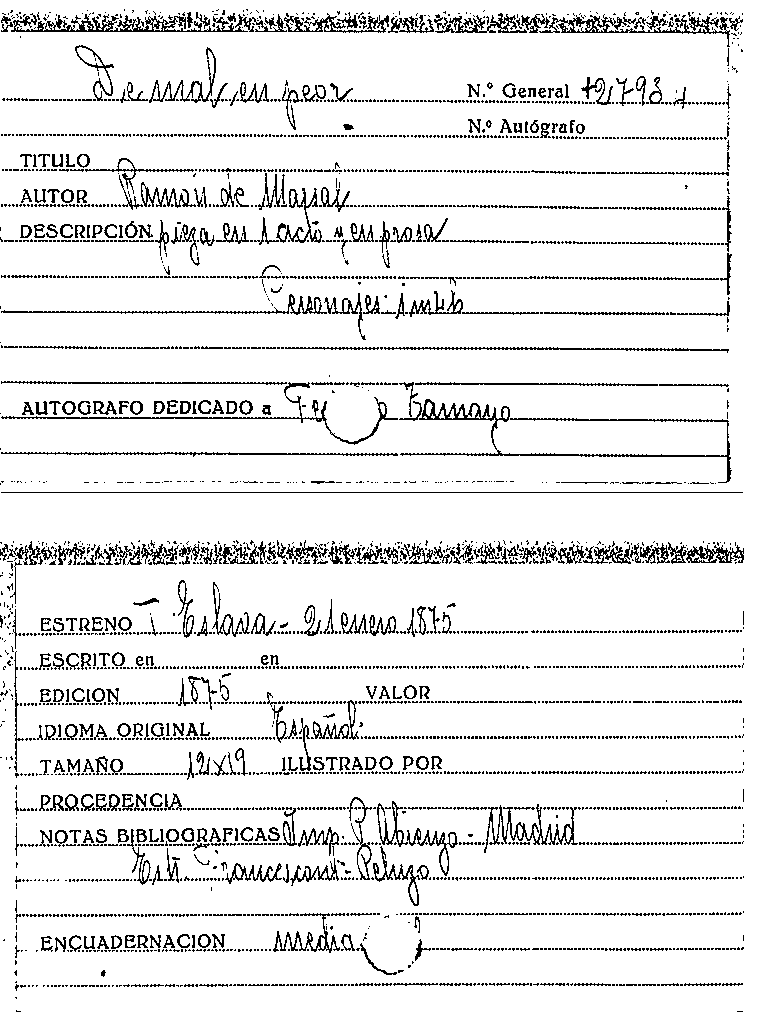 De mal en peor
N.º General 12793
N.º Autógrafo
TITULO
AUTOR Ramón de Marsal
DESCRIPCIÓN pieza en 1 acto y en prosa
Personajes:
AUTOGRAFO DEDICADO a Tamayo
ESTRENO T Eslava - 21 enero 1875
ESCRITO en en
EDICION 1875 VALOR
IDIOMA ORIGINAL Español
TAMAÑO 12x19 ILUSTRADO POR
PROCEDENCIA
NOTAS BIBLIOGRAFICAS Imp. P Abienzo - Madrid
Estr. Francesconi - Peluzo
ENCUADERNACION media